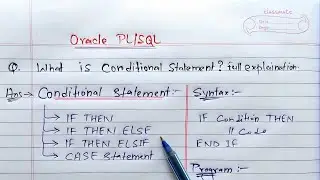 classmate
Date
Page
Oracle PL/SQL
Q. What is Conditional Statement? full explaination.
Ans → Conditional Statement:-
→ IF THEN
→ IF THEN ELSE
→ IF THEN ELSIF
→ CASE Statement
Syntax:-
IF Condition THEN
// Code
END IF
Program:-